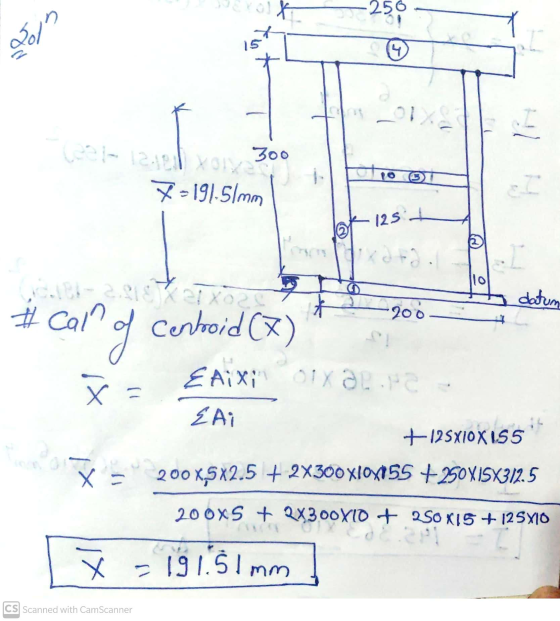 Solⁿ
250
15
4
300
X̄ = 191.51mm
10 3
125
2
2
10
1
datum
200
# Calⁿ of centroid (X̄)
X̄ = ΣAiXi / ΣAi
+125X10X155
X̄ = 200X5X2.5 + 2X300X10X155 + 250X15X312.5
200X5 + 2X300X10 + 250X15 + 125X10
X̄ = 191.51 mm
CS Scanned with CamScanner